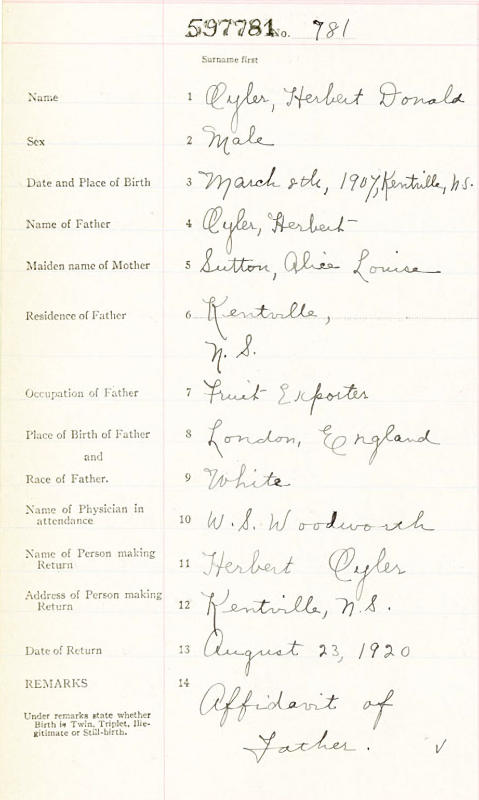 597781 No. 781
Surname first
Name 1 Oyler, Herbert Donald
Sex 2 Male
Date and Place of Birth 3 March 8th, 1907, Kentville, N.S.
Name of Father 4 Oyler, Herbert
Maiden name of Mother 5 Sutton, Alice Louise
Residence of Father 6 Kentville,
N.S.
Occupation of Father 7 Fruit Exporter
Place of Birth of Father 8 London, England
and
Race of Father. 9 White
Name of Physician in
attendance 10 W. S. Woodworth
Name of Person making
Return 11 Herbert Oyler
Address of Person making
Return 12 Kentville, N.S.
Date of Return 13 August 23, 1920
REMARKS 14 Affidavit of
Father.
Under remarks state whether
Birth is Twin, Triplet, Ille-
gitimate or Still-birth.